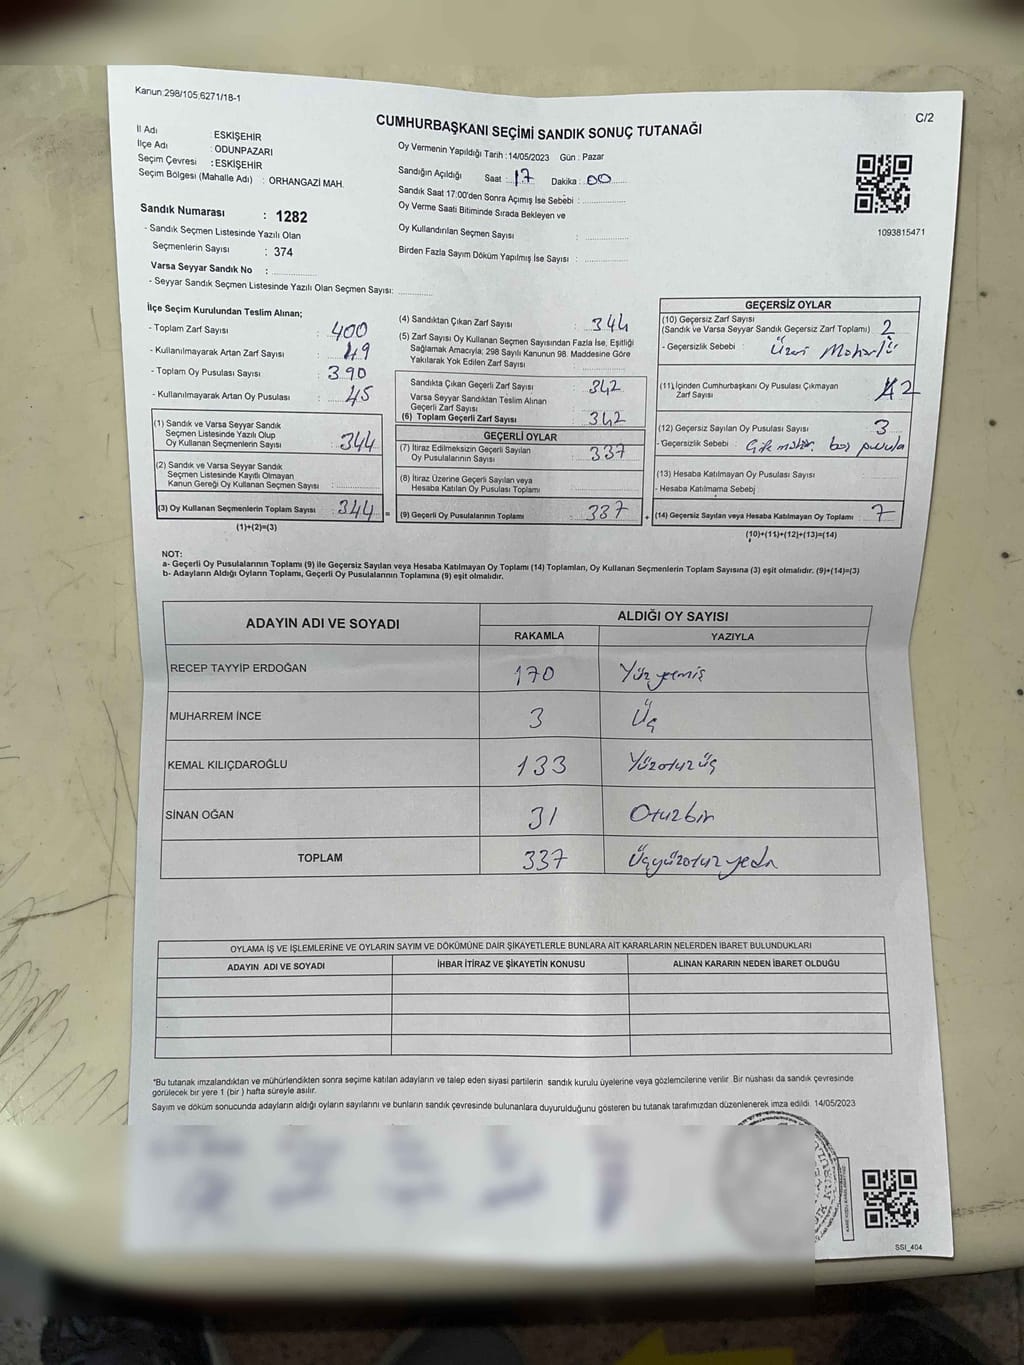 Kanun:298/105,6271/18-1
C/2
CUMHURBAŞKANI SEÇİMİ SANDIK SONUÇ TUTANAĞI
İl Adı : ESKİŞEHİR
İlçe Adı : ODUNPAZARI
Seçim Çevresi : ESKİŞEHİR
Seçim Bölgesi (Mahalle Adı) : ORHANGAZİ MAH.
Sandık Numarası : 1282
- Sandık Seçmen Listesinde Yazılı Olan
Seçmenlerin Sayısı : 374
Varsa Seyyar Sandık No :
- Seyyar Sandık Seçmen Listesinde Yazılı Olan Seçmen Sayısı:
Oy Vermenin Yapıldığı Tarih :14/05/2023 Gün : Pazar
Sandığın Açıldığı Saat : 17 Dakika : 00
Sandık Saat 17:00'den Sonra Açımış İse Sebebi :
Oy Verme Saati Bitiminde Sırada Bekleyen ve
Oy Kullandırılan Seçmen Sayısı :
Birden Fazla Sayım Döküm Yapılmış İse Sayısı :
1093815471
İlçe Seçim Kurulundan Teslim Alınan;
- Toplam Zarf Sayısı : 400
- Kullanılmayarak Artan Zarf Sayısı : 49
- Toplam Oy Pusulası Sayısı : 390
- Kullanılmayarak Artan Oy Pusulası : 45
(1) Sandık ve Varsa Seyyar Sandık
Seçmen Listesinde Yazılı Olup
Oy Kullanan Seçmenlerin Sayısı : 344
(2) Sandık ve Varsa Seyyar Sandık
Seçmen Listesinde Kayıtlı Olmayan
Kanun Gereği Oy Kullanan Seçmen Sayısı :
(3) Oy Kullanan Seçmenlerin Toplam Sayısı : 344 =
(1)+(2)=(3)
(4) Sandıktan Çıkan Zarf Sayısı : 344
(5) Zarf Sayısı Oy Kullanan Seçmen Sayısından Fazla İse, Eşitliği
Sağlamak Amacıyla; 298 Sayılı Kanunun 98. Maddesine Göre
Yakılarak Yok Edilen Zarf Sayısı :
Sandıkta Çıkan Geçerli Zarf Sayısı : 342
Varsa Seyyar Sandıktan Teslim Alınan
Geçerli Zarf Sayısı :
(6) Toplam Geçerli Zarf Sayısı : 342
GEÇERLİ OYLAR
(7) İtiraz Edilmeksizin Geçerli Sayılan
Oy Pusulalarının Sayısı : 337
(8) İtiraz Üzerine Geçerli Sayılan veya
Hesaba Katılan Oy Pusulası Toplamı :
(9) Geçerli Oy Pusulalarının Toplamı : 337 +
GEÇERSİZ OYLAR
(10) Geçersiz Zarf Sayısı
(Sandık ve Varsa Seyyar Sandık Geçersiz Zarf Toplamı) : 2
- Geçersizlik Sebebi : Üzeri Mühürlü
(11) İçinden Cumhurbaşkanı Oy Pusulası Çıkmayan
Zarf Sayısı : 2
(12) Geçersiz Sayılan Oy Pusulası Sayısı : 3
- Geçersizlik Sebebi : Çift mühür, boş pusula
(13) Hesaba Katılmayan Oy Pusulası Sayısı :
- Hesaba Katılmama Sebebi :
(14) Geçersiz Sayılan veya Hesaba Katılmayan Oy Toplamı : 7
(10)+(11)+(12)+(13)=(14)
NOT:
a- Geçerli Oy Pusulalarının Toplamı (9) ile Geçersiz Sayılan veya Hesaba Katılmayan Oy Toplamı (14) Toplamları, Oy Kullanan Seçmenlerin Toplam Sayısına (3) eşit olmalıdır. (9)+(14)=(3)
b- Adayların Aldığı Oyların Toplamı, Geçerli Oy Pusulalarının Toplamına (9) eşit olmalıdır.
ADAYIN ADI VE SOYADI
ALDIĞI OY SAYISI
RAKAMLA YAZIYLA
RECEP TAYYİP ERDOĞAN 170 Yüz yetmiş
MUHARREM İNCE 3 Üç
KEMAL KILIÇDAROĞLU 133 Yüzotuz üç
SİNAN OĞAN 31 Otuzbir
TOPLAM 337 Üçyüzotuz yedi
OYLAMA İŞ VE İŞLEMLERİNE VE OYLARIN SAYIM VE DÖKÜMÜNE DAİR ŞİKAYETLERLE BUNLARA AİT KARARLARIN NELERDEN İBARET BULUNDUKLARI
ADAYIN ADI VE SOYADI İHBAR İTİRAZ VE ŞİKAYETİN KONUSU ALINAN KARARIN NEDEN İBARET OLDUĞU
*Bu tutanak imzalandıktan ve mühürlendikten sonra seçime katılan adayların ve talep eden siyasi partilerin sandık kurulu üyelerine veya gözlemcilerine verilir. Bir nüshası da sandık çevresinde
görülecek bir yere 1 (bir ) hafta süreyle asılır.
Sayım ve döküm sonucunda adayların aldığı oyların sayılarını ve bunların sandık çevresinde bulunanlara duyurulduğunu gösteren bu tutanak tarafımızdan düzenlenerek imza edildi. 14/05/2023
SSI_404